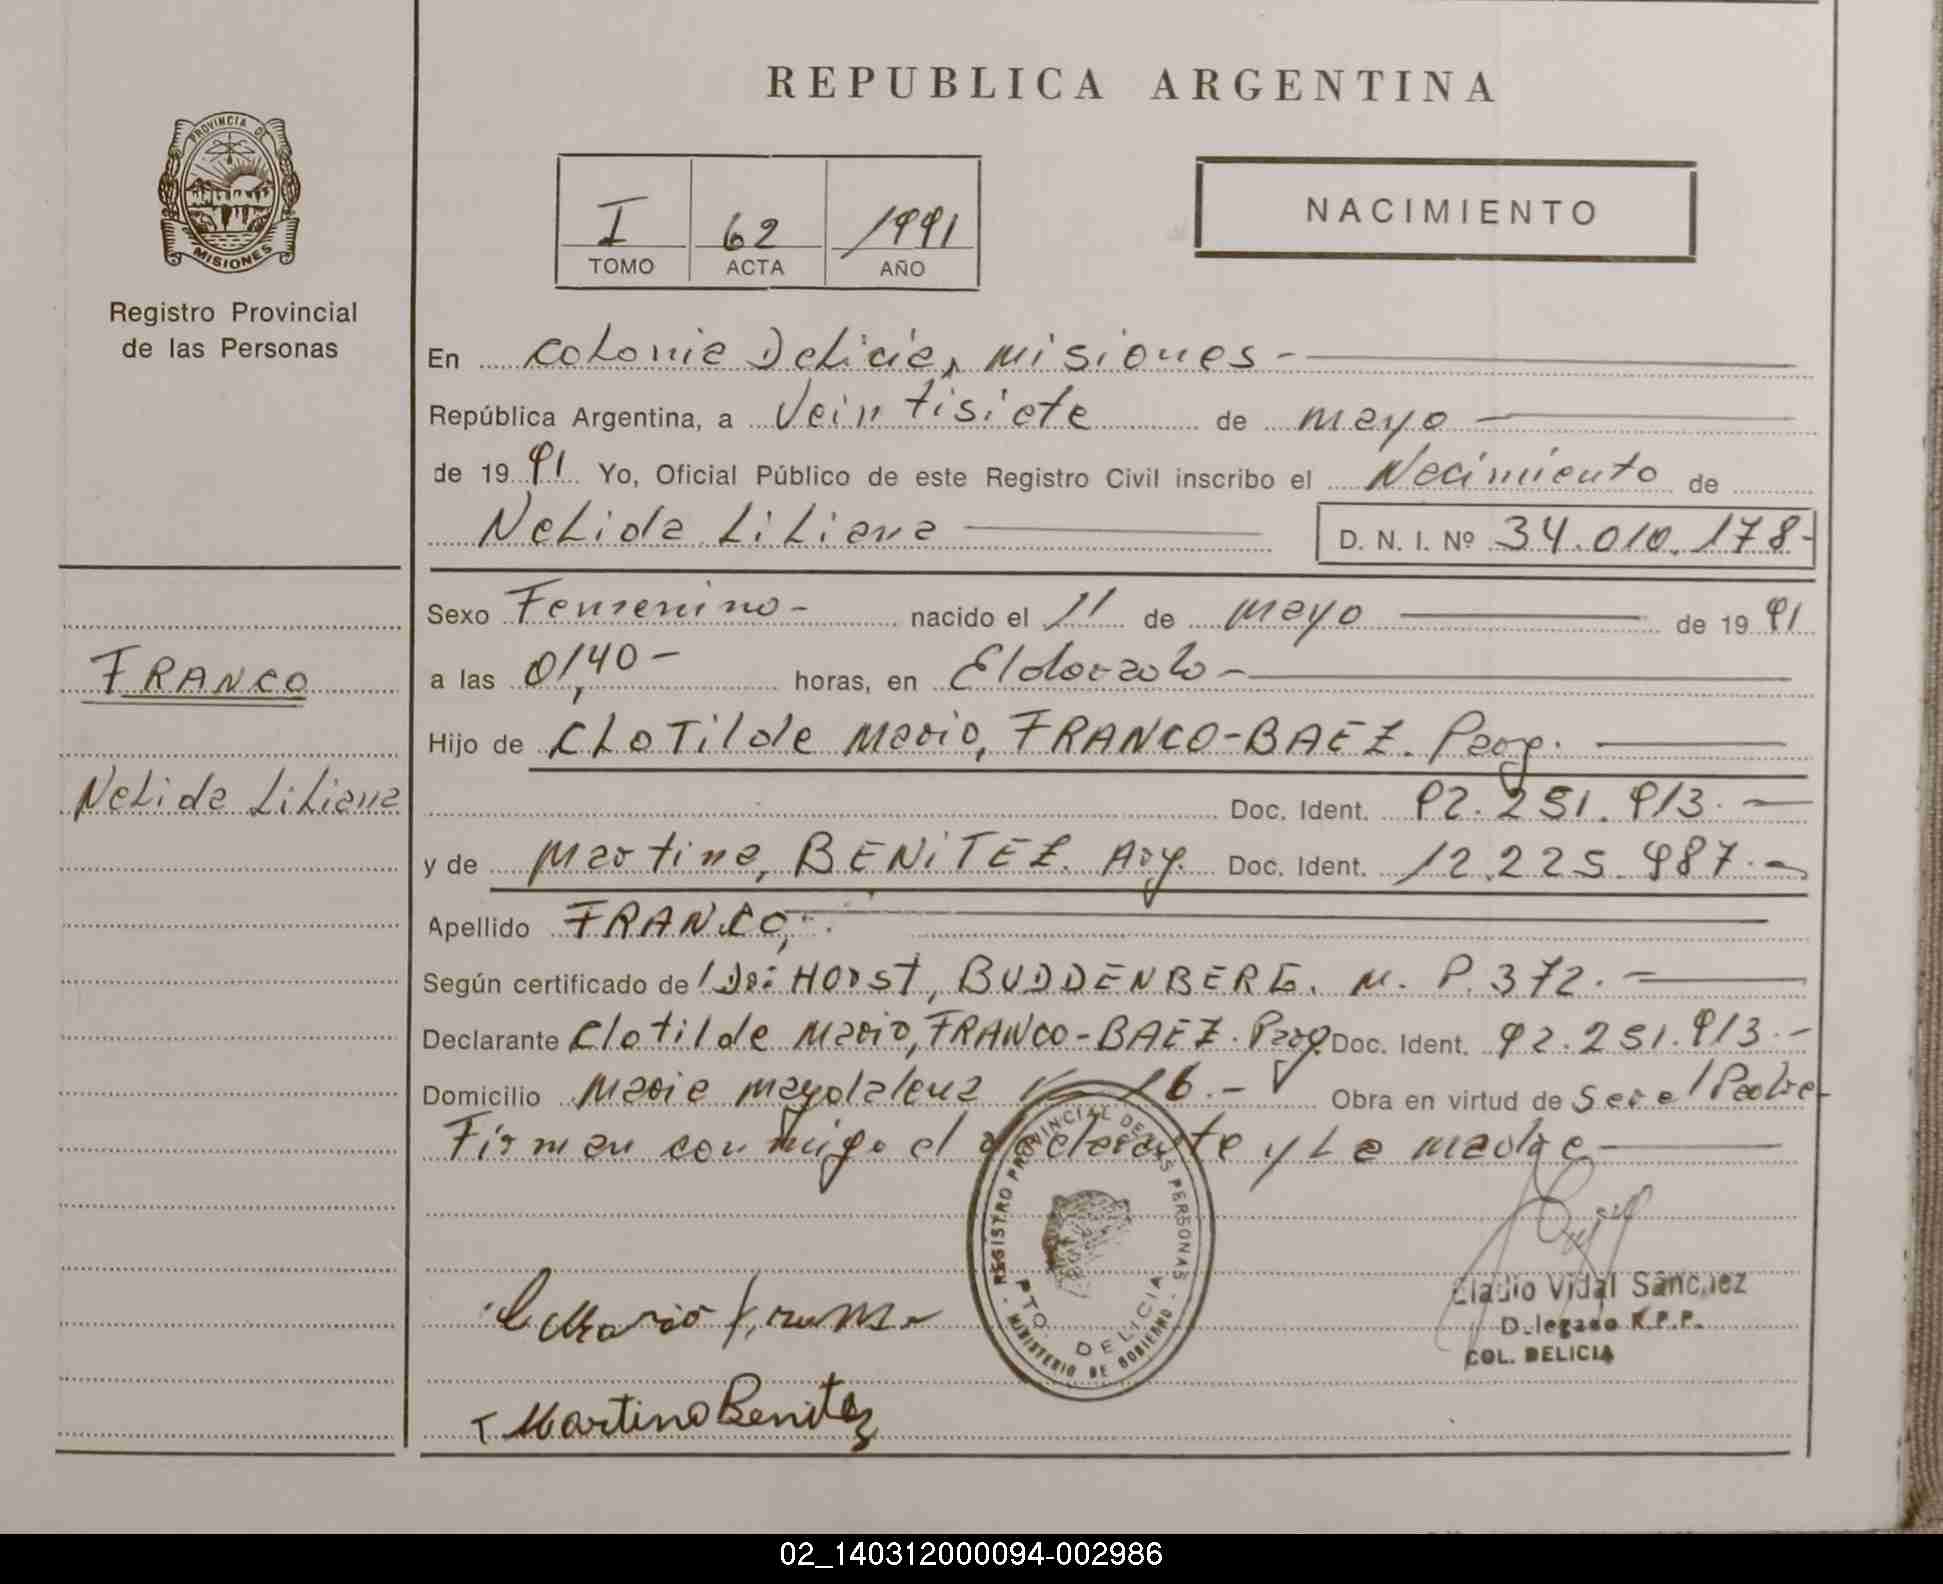 REPUBLICA ARGENTINA
PROVINCIA DE
MISIONES
Registro Provincial
de las Personas
I 62 1991
TOMO ACTA AÑO
NACIMIENTO
En Colonia Delicia, Misiones -
República Argentina, a Veintisiete de mayo
de 19 91 Yo, Oficial Público de este Registro Civil inscribo el Nacimiento de
Nelida Liliana D. N. I. Nº 34.010.178-
Sexo Femenino- nacido el 11 de mayo de 19 91
a las 01,40- horas, en Eldorado-
Hijo de Clotilde Mario, FRANCO-BAEZ. Parg.
Doc. Ident. 92.251.913.-
y de Martina, BENITEZ. Arg. Doc. Ident. 12.225.987.-
Apellido FRANCO,
Según certificado de Dr: HORST, BUDDENBERG. M. P. 372.-
Declarante Clotilde Mario, FRANCO-BAEZ. Parg. Doc. Ident. 92.251.913.-
Domicilio Maria Magdalena 16.- Obra en virtud de Ser el Padre-
Firman conmigo el declarante y La madre
FRANCO
Nelida Liliana
REGISTRO PROVINCIAL DE LAS PERSONAS
PTO DELICIA
MINISTERIO DE GOBIERNO
Eladio Vidal Sánchez
Delegado R.P.P.
COL. DELICIA
Martina Benitez
02_140312000094-002986